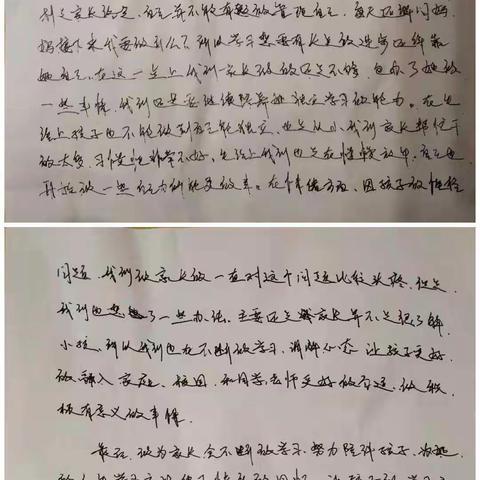 别是家长改变,自己并不能有效的管理自己,每天还都问妈
妈接下来我要做什么?所以学习想要有长足的进步还得靠
她自己。在这一点上我们家长做的还是不够,包办了她的
一些事情,我们还是要继续陪养她独立学习的能力。在生
活上孩子也不能做到完全独立,也是从小我们家长帮忙干
的太多,习惯性非常不好,生活上我们也是在慢慢放手,自己也
开始做一些力所能及的事。在情绪方面,因孩子的性格
问题,我们做家长的一直对这个问题比较头疼,但是
我们也想了一些办法,主要还是家长并不是很了解
小孩,所以我们也在不断的学习,调解心态,让孩子更好
的融入家庭、校园,和同学老师更好的交流,做积
极有意义的事情。
最后,做为家长会不断的学习,努力陪伴孩子,为她